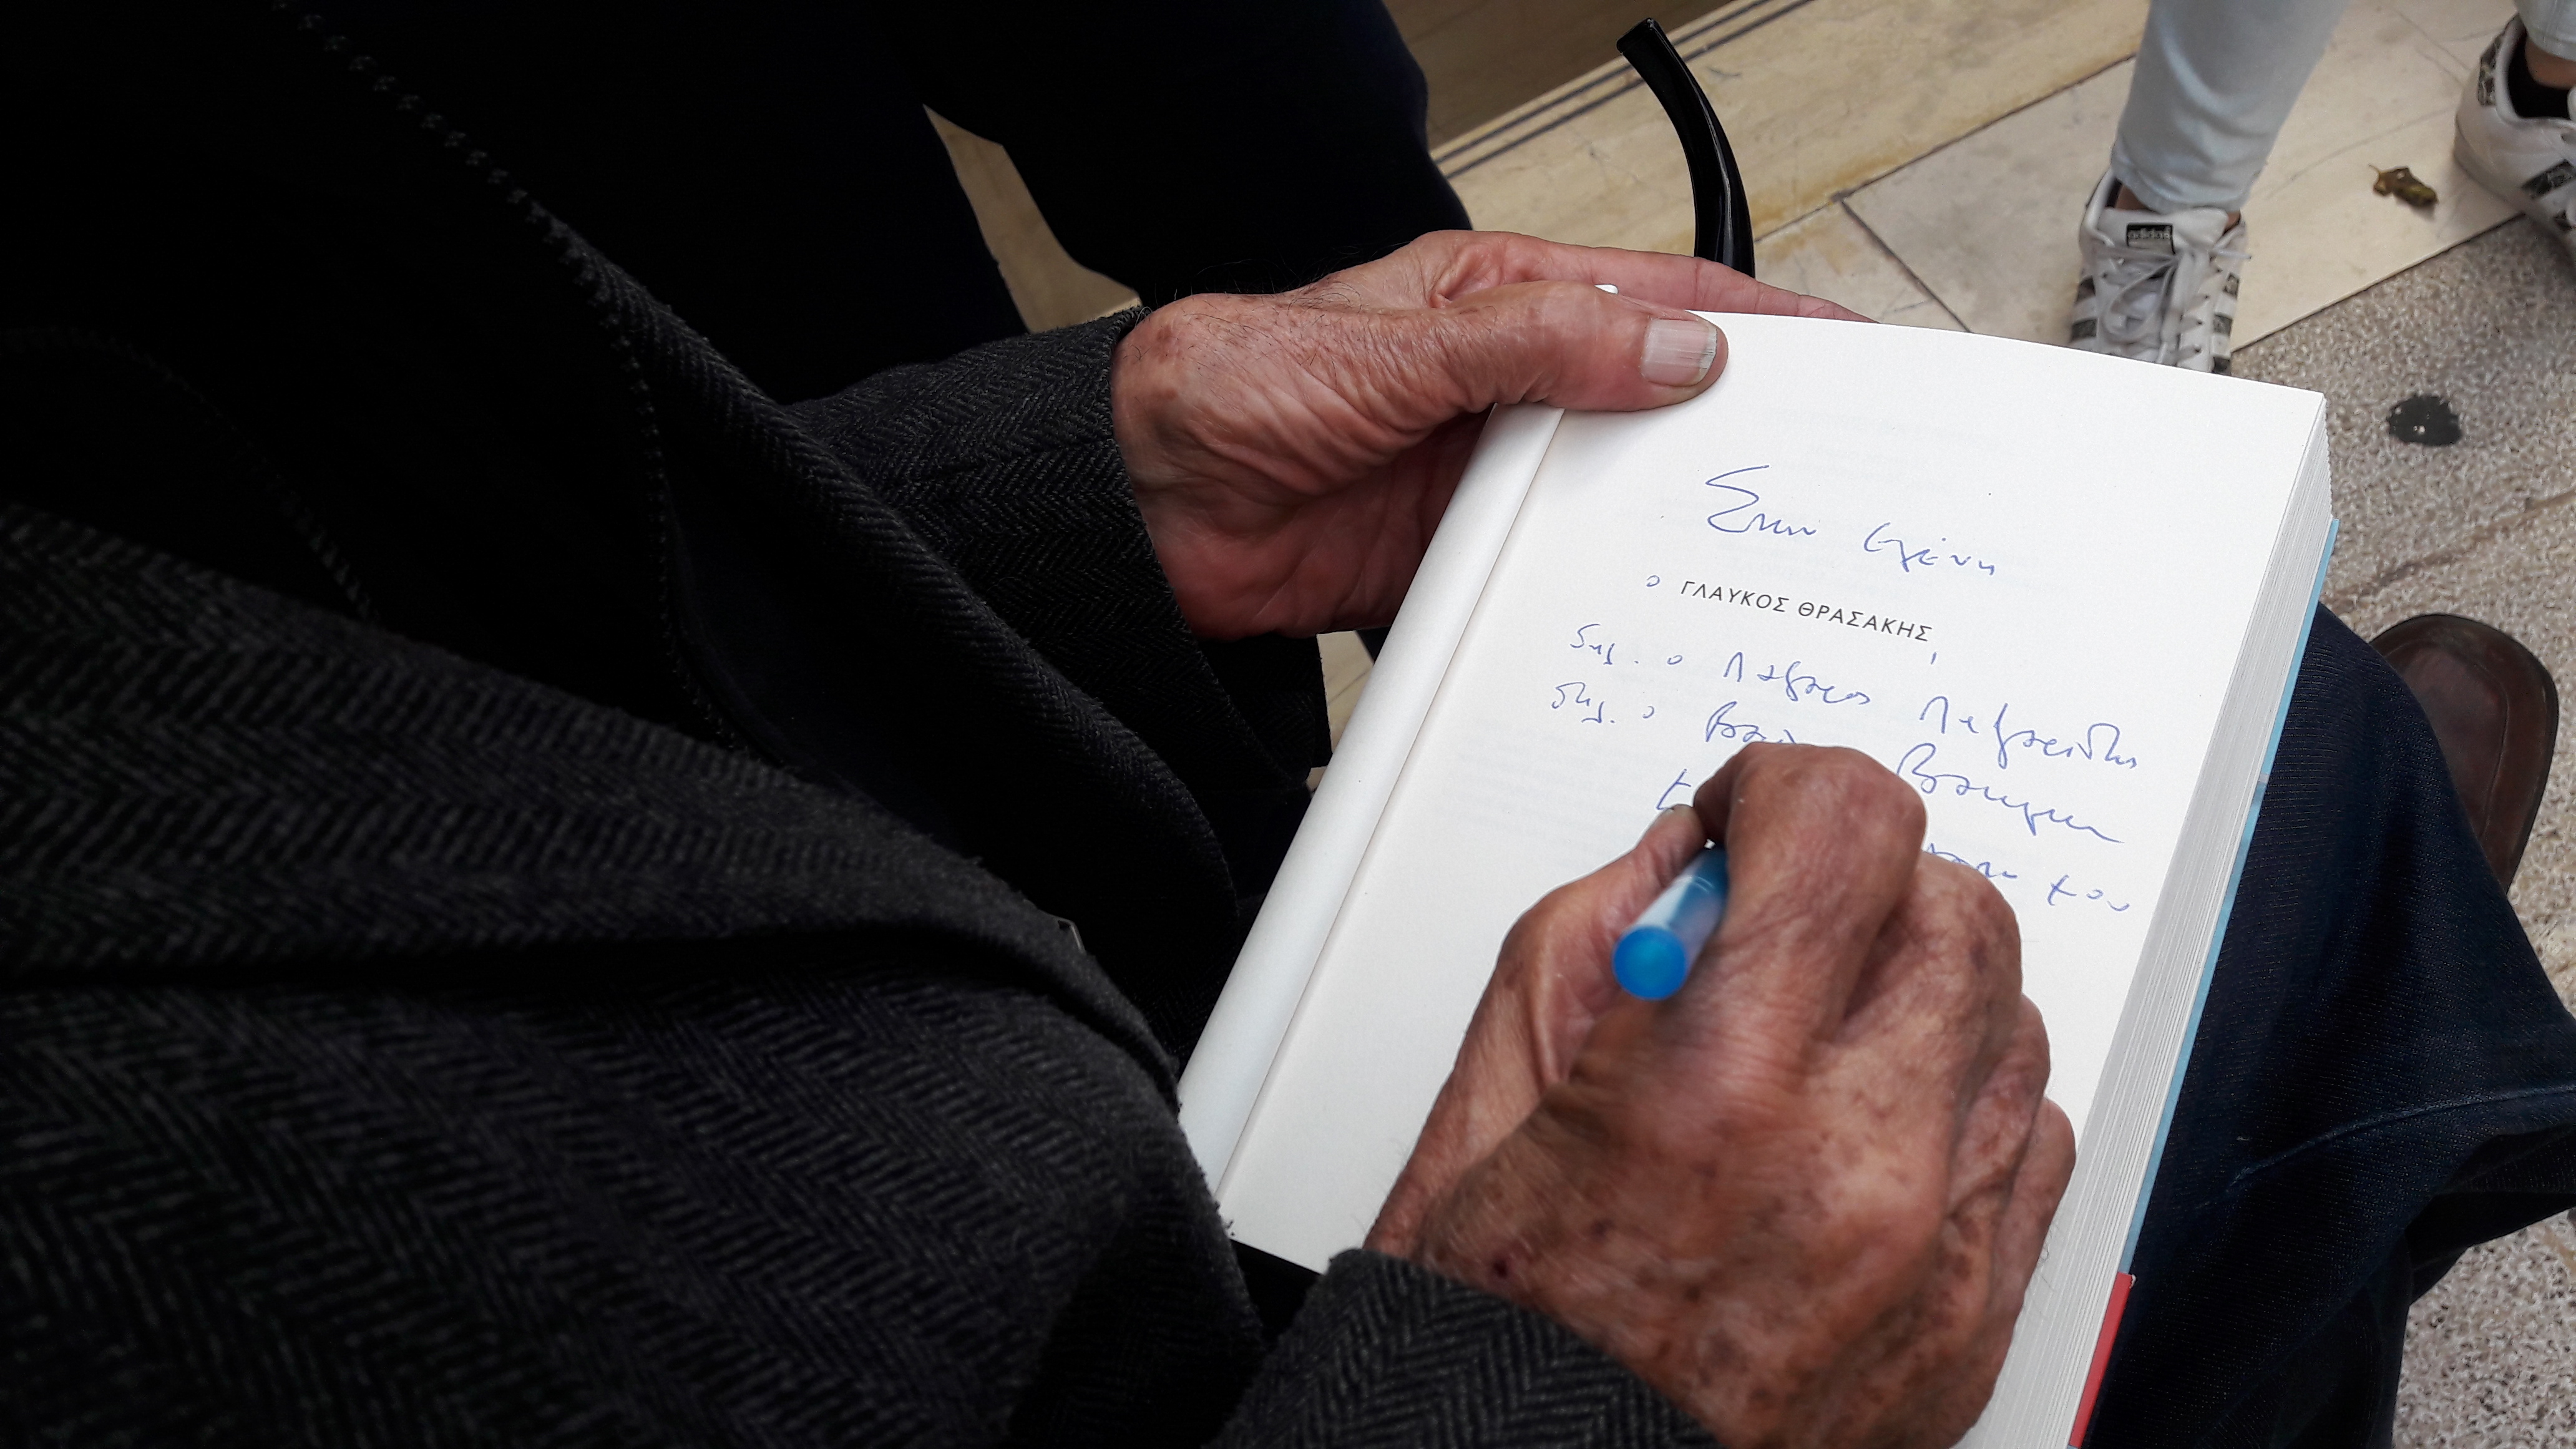 Στην Ελένη
ο ΓΛΑΥΚΟΣ ΘΡΑΣΑΚΗΣ,
δηλ. ο Λάζαρος Λαζαρίδης
δηλ. ο Βασίλης Βασιλικ
μου
adidas